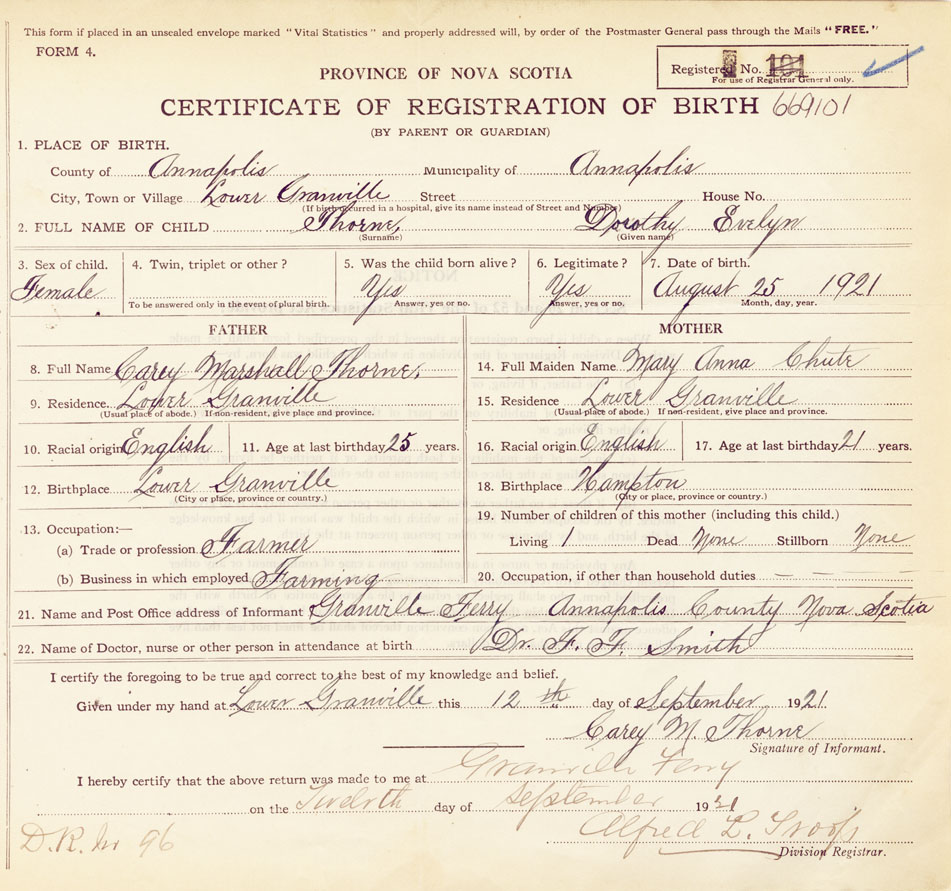 This form if placed in an unsealed envelope marked "Vital Statistics" and properly addressed will, by order of the Postmaster General pass through the Mails "FREE."
FORM 4.
Registered No. 101
For use of Registrar General only.
PROVINCE OF NOVA SCOTIA
CERTIFICATE OF REGISTRATION OF BIRTH 669101
(BY PARENT OR GUARDIAN)
1. PLACE OF BIRTH.
County of Annapolis Municipality of Annapolis
City, Town or Village Lower Granville Street House No.
(If birth occurred in a hospital, give its name instead of Street and Number)
2. FULL NAME OF CHILD Thorne, Dorothy Evelyn
(Surname) (Given name)
3. Sex of child. 4. Twin, triplet or other? 5. Was the child born alive? 6. Legitimate? 7. Date of birth.
Female Yes Yes August 25 1921
To be answered only in the event of plural birth. Answer, yes or no. Answer, yes or no. Month, day, year.
FATHER
8. Full Name Carey Marshall Thorne.
9. Residence. Lower Granville
(Usual place of abode.) If non-resident, give place and province.
10. Racial origin English 11. Age at last birthday 25 years.
12. Birthplace Lower Granville
(City or place, province or country.)
13. Occupation:—
(a) Trade or profession Farmer
(b) Business in which employed Farming
MOTHER
14. Full Maiden Name Mary Anna Chute
15. Residence Lower Granville
(Usual place of abode.) If non-resident, give place and province.
16. Racial origin English 17. Age at last birthday 21 years.
18. Birthplace Hampton
(City or place, province or country.)
19. Number of children of this mother (including this child.)
Living 1 Dead None Stillborn None
20. Occupation, if other than household duties — — —
21. Name and Post Office address of Informant Granville Ferry Annapolis County Nova Scotia
22. Name of Doctor, nurse or other person in attendance at birth Dr. F. F. Smith
I certify the foregoing to be true and correct to the best of my knowledge and belief.
Given under my hand at Lower Granville this 12 th day of September 1921
Carey M. Thorne
Signature of Informant.
I hereby certify that the above return was made to me at Granville Ferry
on the Twelfth day of September 1921
Alfred L. Troop
Division Registrar.
D.R. No 96